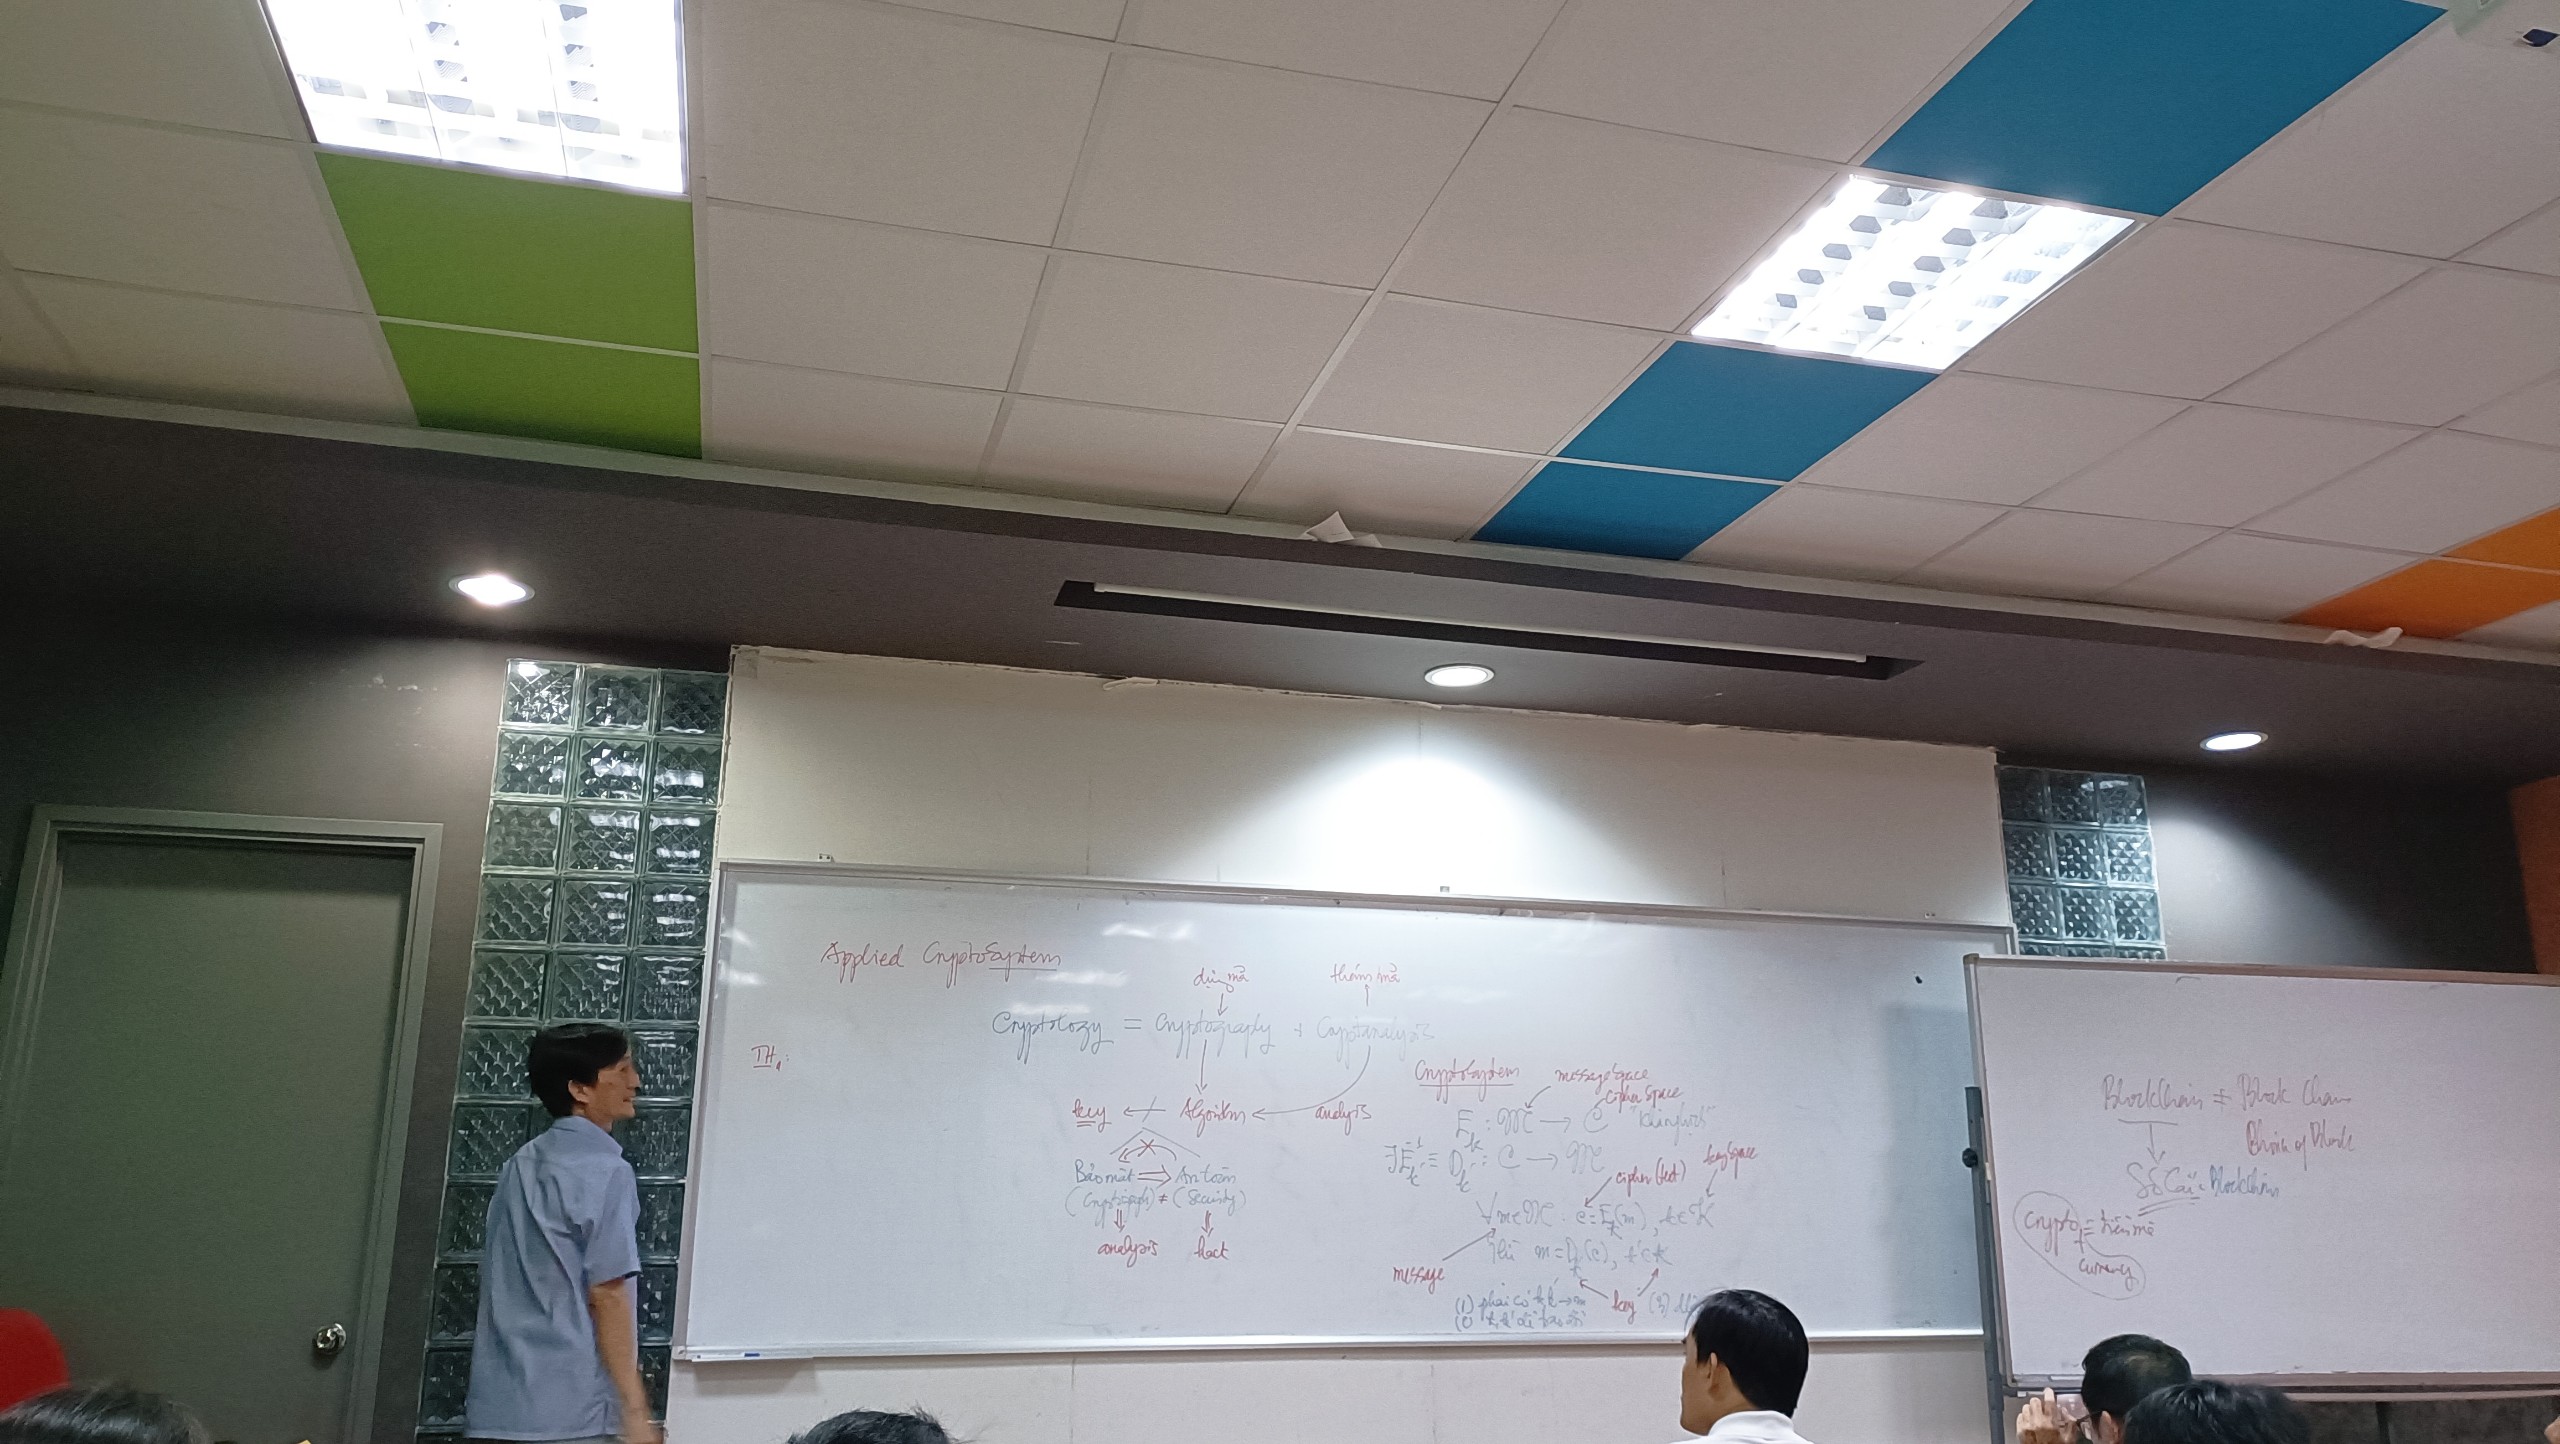 Applied CryptoSystem
dựng mã
thám mã
Cryptology = Cryptography + Cryptanalysis
TH₁:
key
Algorithm
analysis
Bảo mật ⇒ An toàn
(Cryptography) ≠ (Security)
analysis
hack
CryptoSystem
message space
cipher space
E_k : M → C
∃E_k^{-1} ≡ D_k : C → M
cipher (text)
key space
∀m∈M : c = E_k(m), k∈K
thì m = D_k'(c), k'∈K
message
key
(1) phải có k, k' → m
BlockChain ≠ Block Chain
Chain of Block
Sổ Cái = BlockChain
Crypto = tiền mã
currency